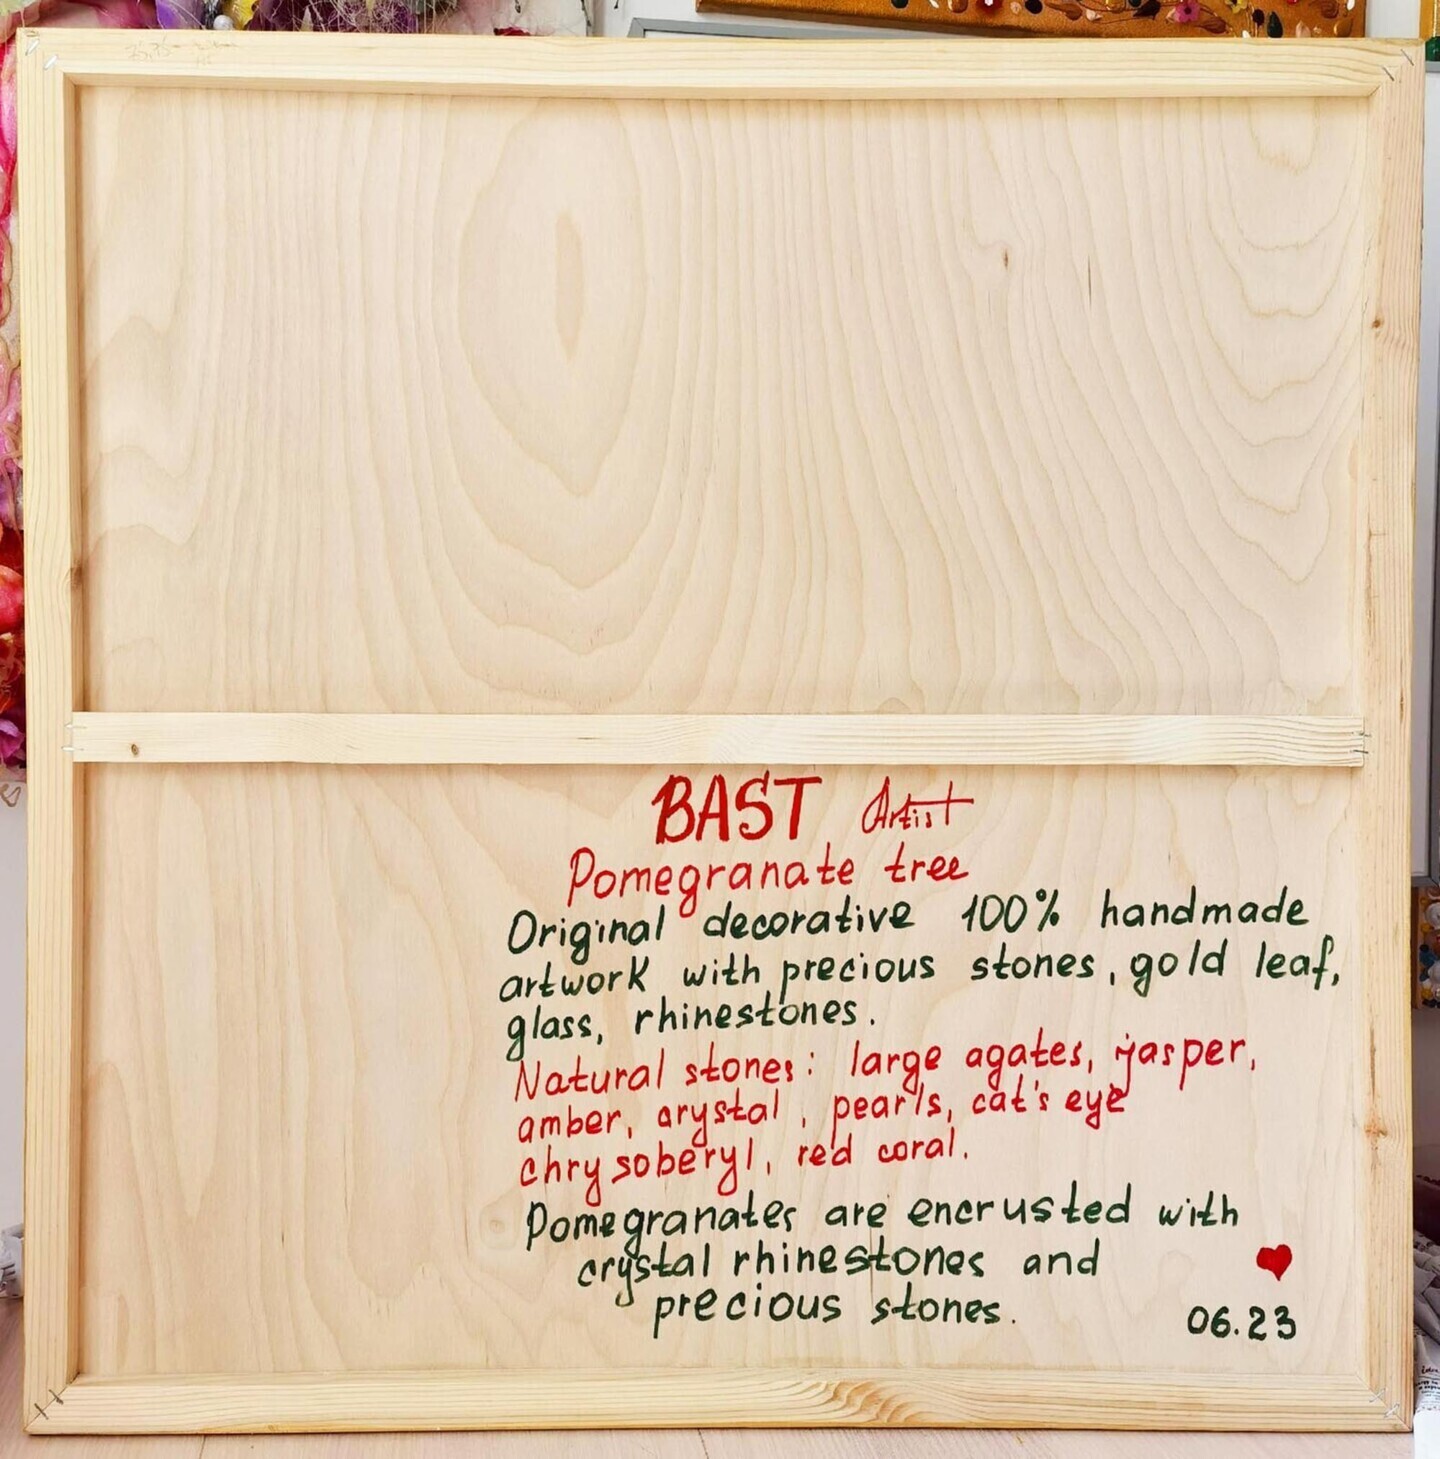 BAST Artist
Pomegranate tree
Original decorative 100% handmade
artwork with precious stones, gold leaf,
glass, rhinestones.
Natural stones: large agates, jasper,
amber, crystal, pearls, cat's eye
chrysoberyl, red coral.
Pomegranates are encrusted with
crystal rhinestones and
precious stones.
06.23